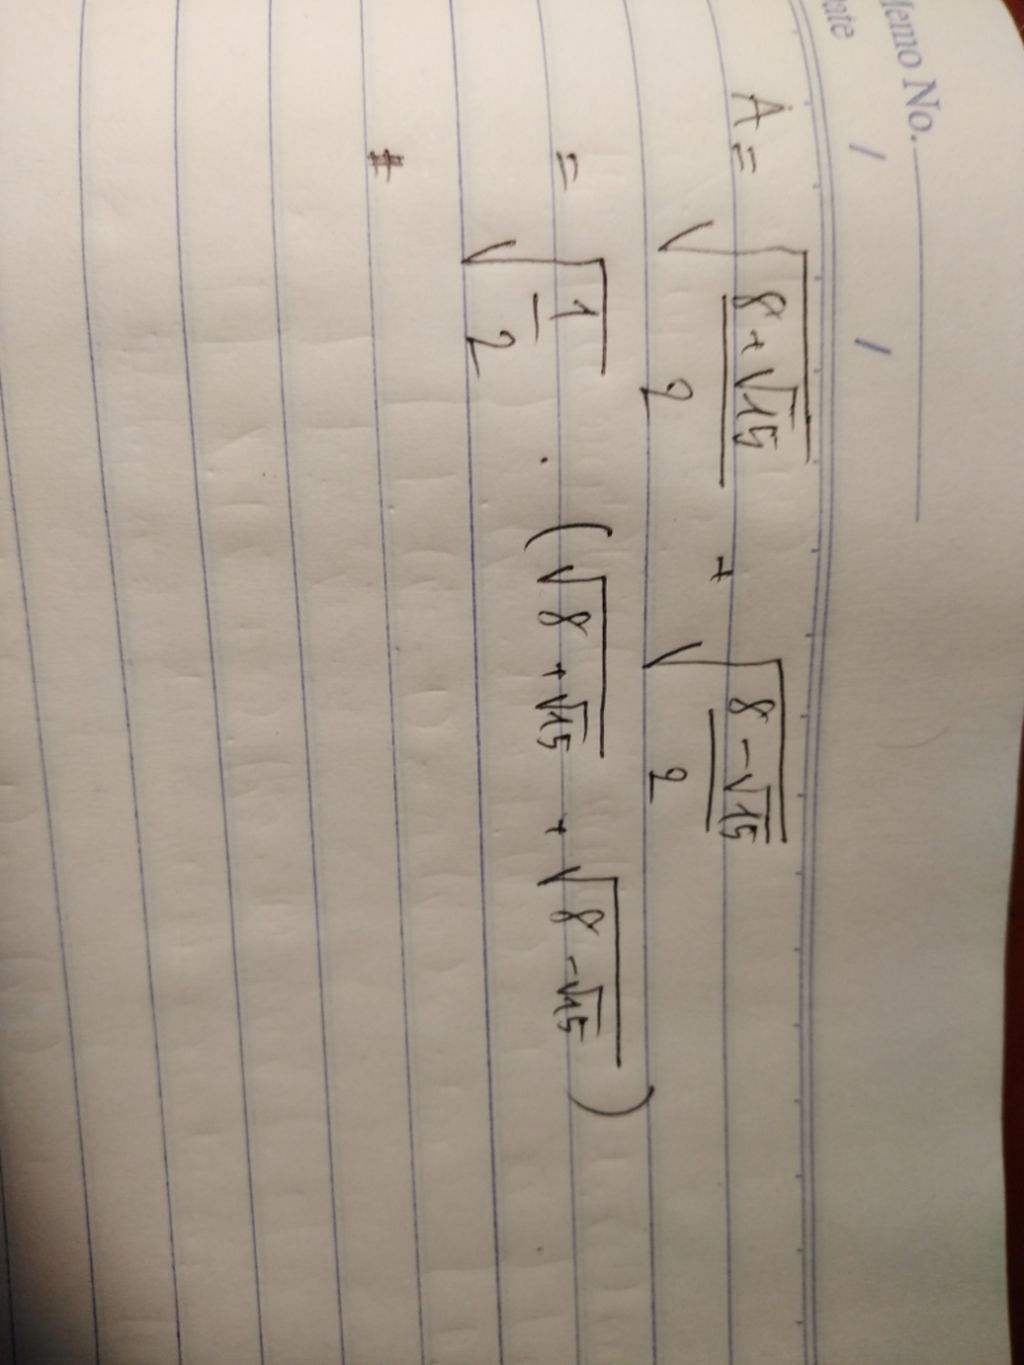 Memo No.
Date / /
A = √((8 + √15)/2) + √((8 - √15)/2)
= √(1/2) . (√(8 + √15) + √(8 - √15))
#